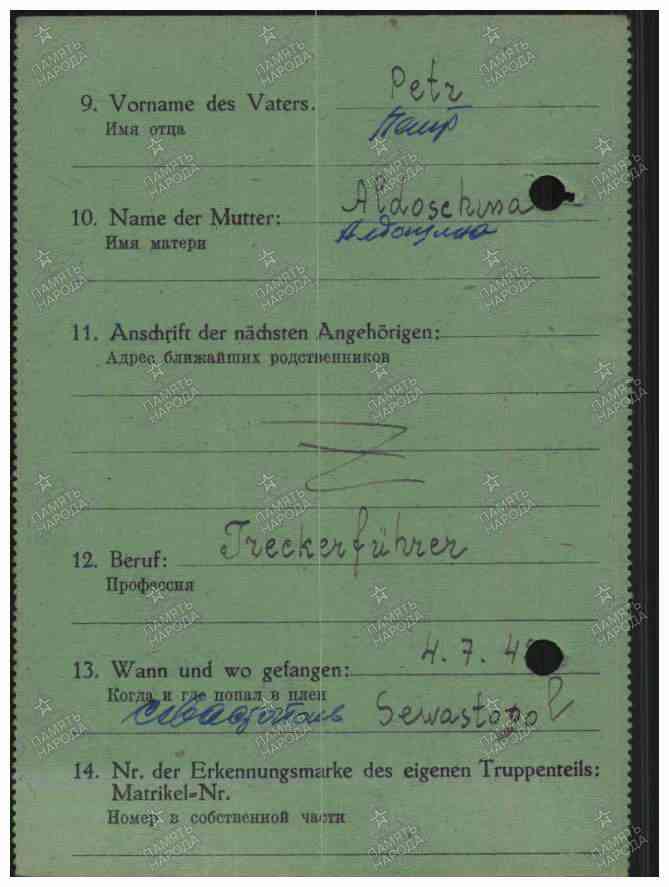 Petr
9. Vorname des Vaters.
Имя отца
Петр
Aldoschina
10. Name der Mutter:
Имя матери
Алдошина
11. Anschrift der nächsten Angehörigen:
Адрес ближайших родственников
Treckerführer
12. Beruf:
Профессия
4.7.42
13. Wann und wo gefangen:
Когда и где попал в плен
Севастополь Sewastopol
14. Nr. der Erkennungsmarke des eigenen Truppenteils:
Matrikel-Nr.
Номер в собственной части
ПАМЯТЬ НАРОДА